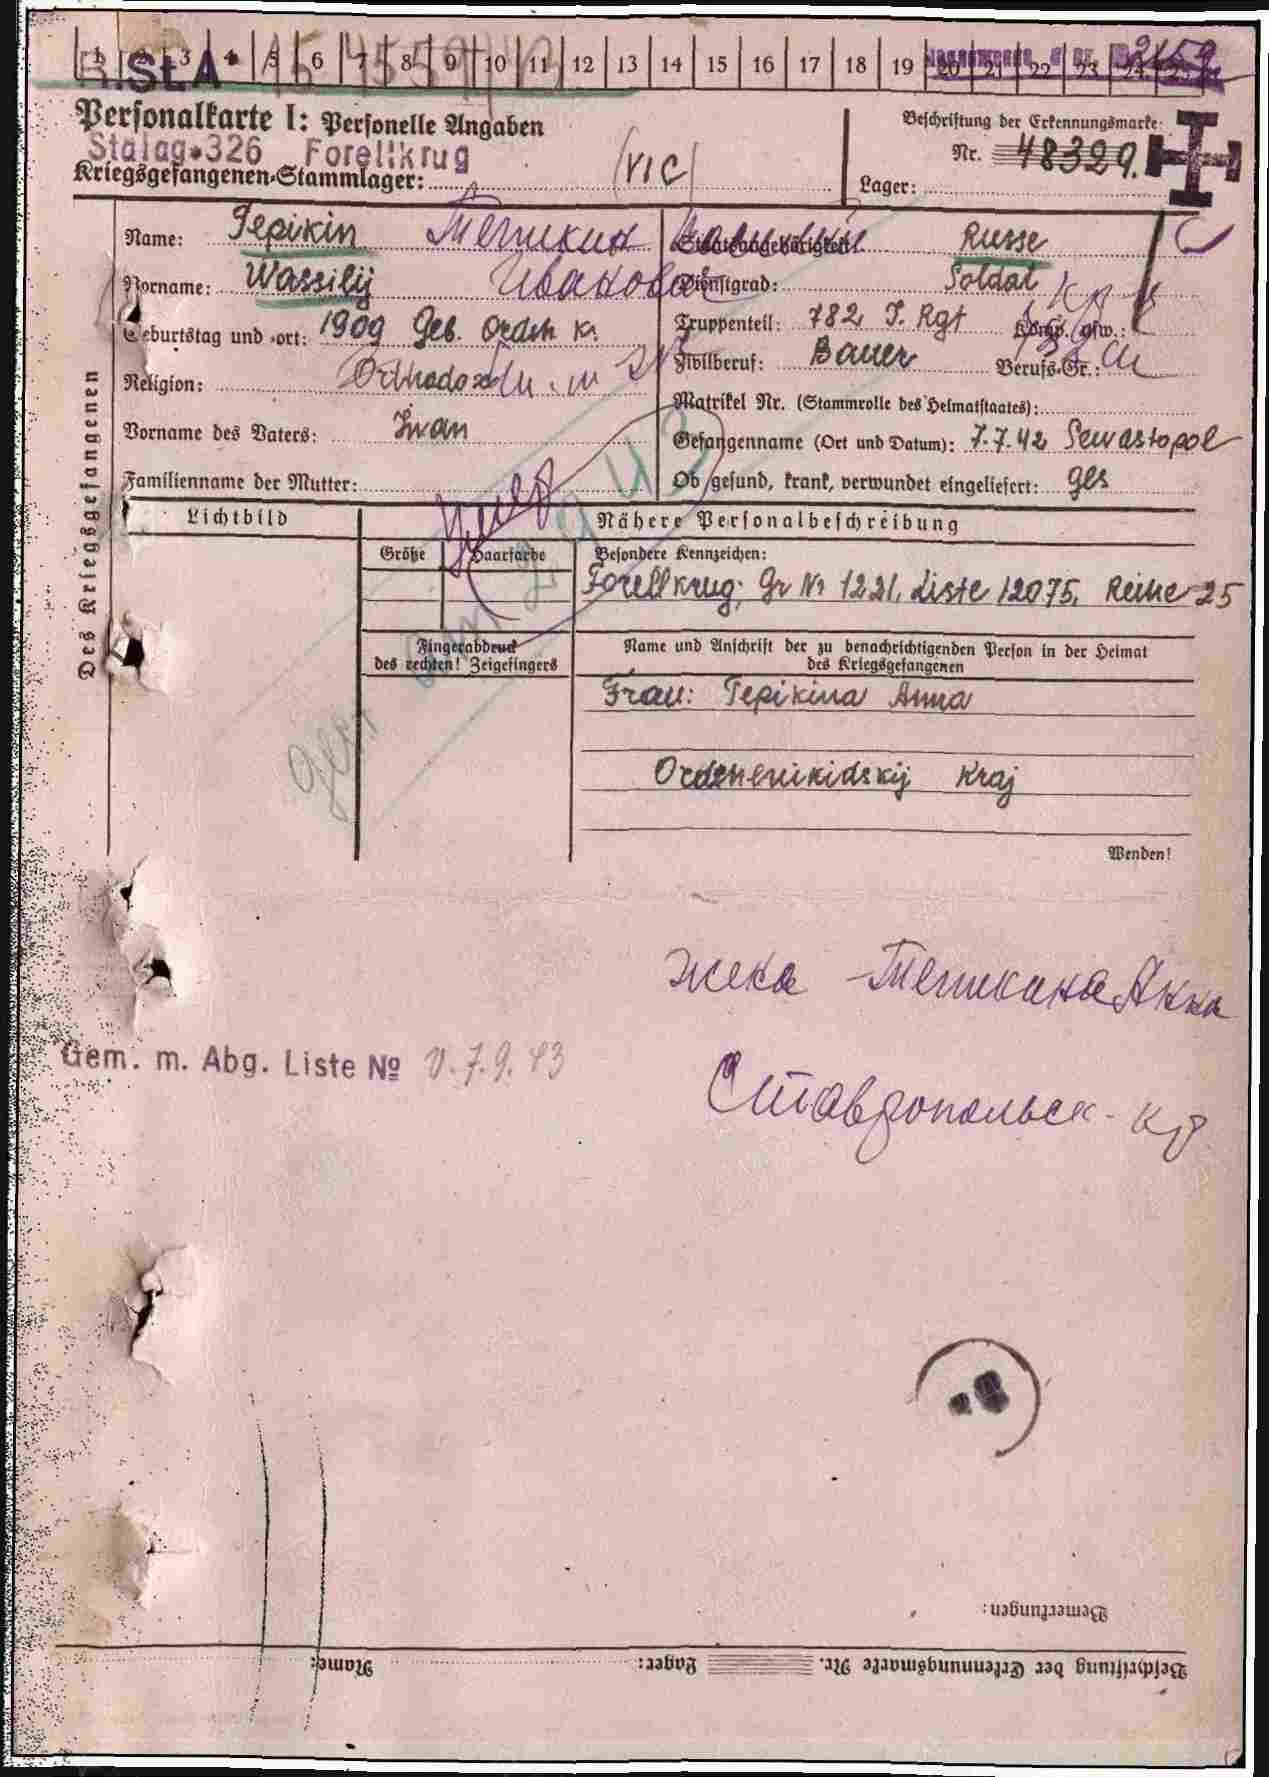 1 2 3 4 5 6 7 8 9 10 11 12 13 14 15 16 17 18 19 20 21 22 23 24 25
StA
Personalkarte I: Personelle Angaben
Beschriftung der Erkennungsmarke:
Stalag 326 Forellkrug
(VI C)
Nr. 48329.
Kriegsgefangenen-Stammlager:
Lager:
Des Kriegsgefangenen
Name: Tepikin Тепикин
Staatsangehörigkeit: Russe
Vorname: Wassilij Иванович
Dienstgrad: Soldat
Geburtstag und -ort: 1909 Geb. Ordsh K.
Truppenteil: 782 J. Rgt Komp. usw.:
Religion: Orthodox
Zivilberuf: Bauer Berufs-Gr.:
Matrikel Nr. (Stammrolle des Heimatstaates):
Vorname des Vaters: Iwan
Gefangennahme (Ort und Datum): 7.7.42 Sewastopol
Familienname der Mutter:
Ob gesund, krank, verwundet eingeliefert: ges
Lichtbild
Nähere Personalbeschreibung
Größe Haarfarbe Besondere Kennzeichen:
Forellkrug; Gr Nr 1221, Liste 12075, Reihe 25
Fingerabdruck
des rechten! Zeigefingers
Name und Anschrift der zu benachrichtigenden Person in der Heimat
des Kriegsgefangenen
Frau: Tepikina Anna
Ordzhenikidskij Kraj
Wenden!
жена - Тепикина Анна
Gem. m. Abg. Liste № V. 7.9.43
Ставропольск- кр
Bemerkungen:
Beschriftung der Erkennungsmarke Nr. Lager: Name: